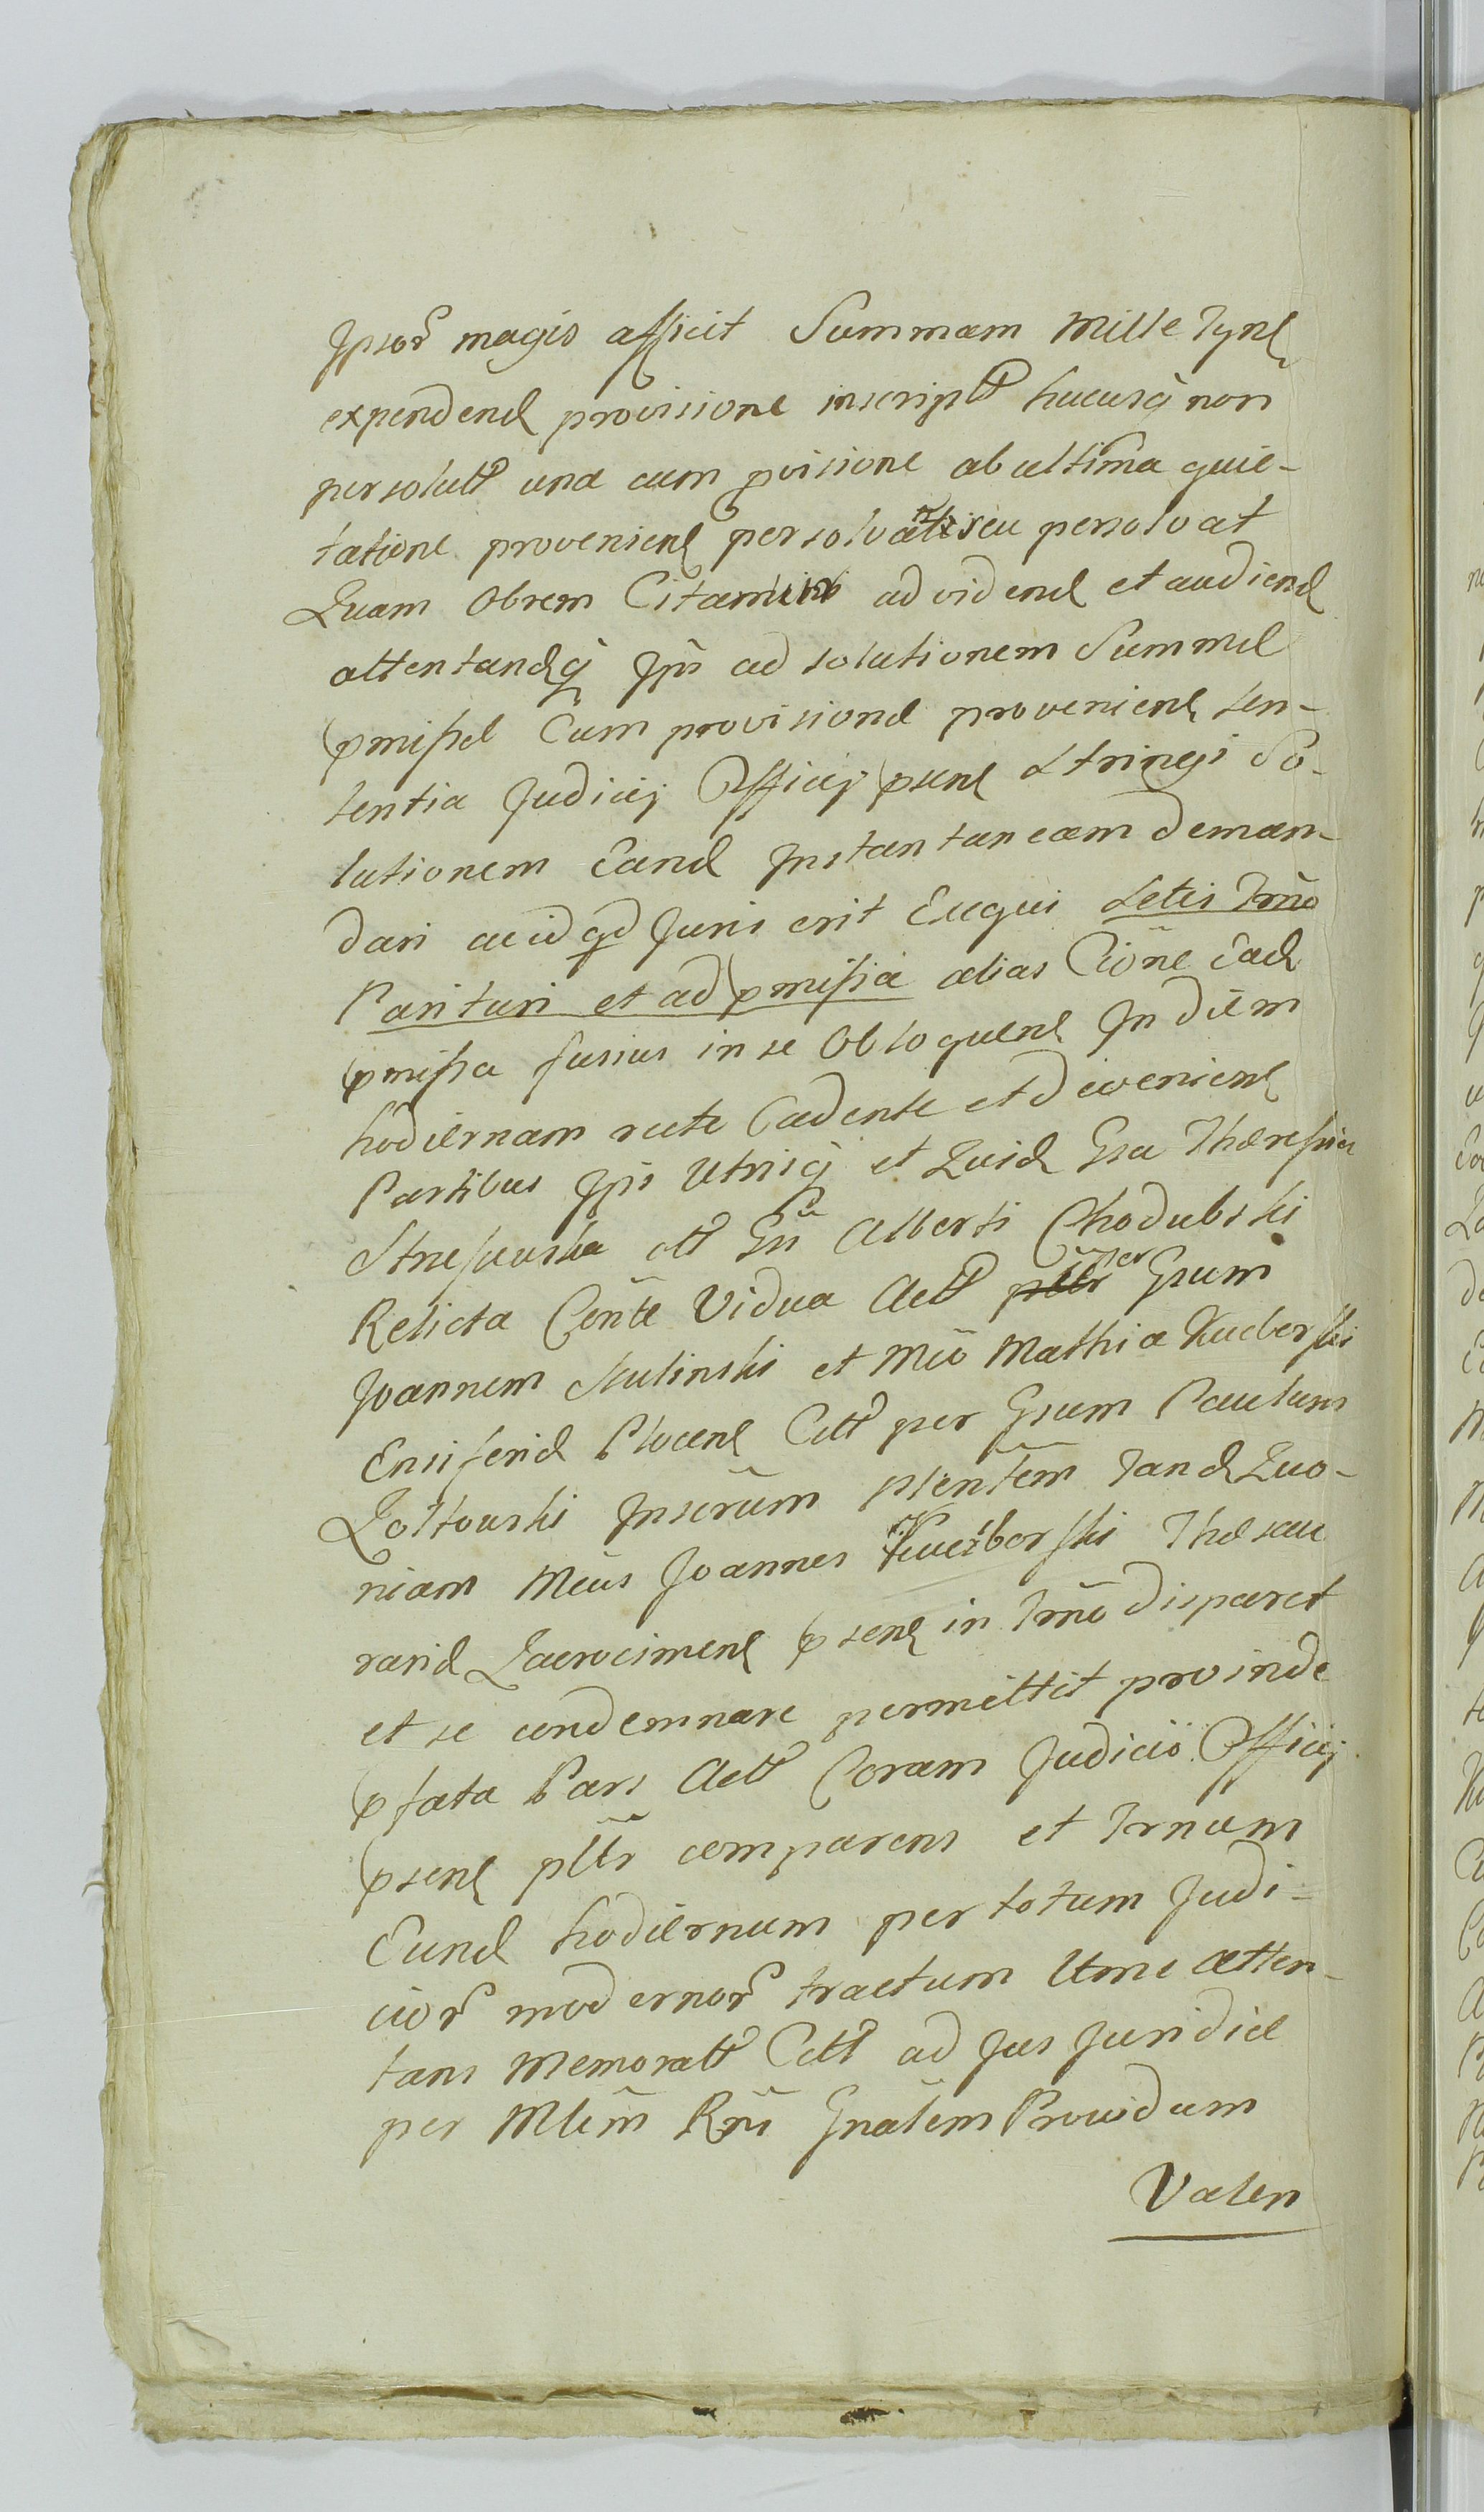 Ipsor magis afficit Summam Mille Tynf
expendend provisione inscript hucusq non
persolutt una cum pvisione ab ultima quie-
tatione provenient persolvat seu persolvat
Quam Obrem Citamini ad vidend et audiend
attentandq Ipis ad solutionem Summae
pmissae Cum provisione provenient sen-
tentia Judicij Officij psent stringi So-
lutionem Eand Instantaneam deman-
dari ac id qd Juris erit Exequi Setis Trno
Parituri et ad pmissa alias Cione Ead
pmissa fusius in se Obloquent In diem
hodiernam recte Cadente et deveniente
Partibus Ipis Utrisq et Quid Gsa Theressia
Strzeszewska olt Gsi Alberti Chodubski
Relicta Conte Vidua Act per Gsum
Joannem Mulinski et Mco Mathia Kucborski
Ensiferid Plocens Citt per Gsum Paulum
Zoltowski Inscrum plentem Tand Quo-
niam Mcus Joannes Kucborski Thesau
rarid Zacrocimens psens in Trno disparet
et se condemnare permittit proinde
pfata Pars Act Coram Judicio Officij
psent pltr comparens et Trnum
Eund hodiernum per totum Judi-
cior modernor tractum Utme atten-
tans Memoratt Citt ad Jus Juridice
per Mlem Rni Gnalem Providum
Valen